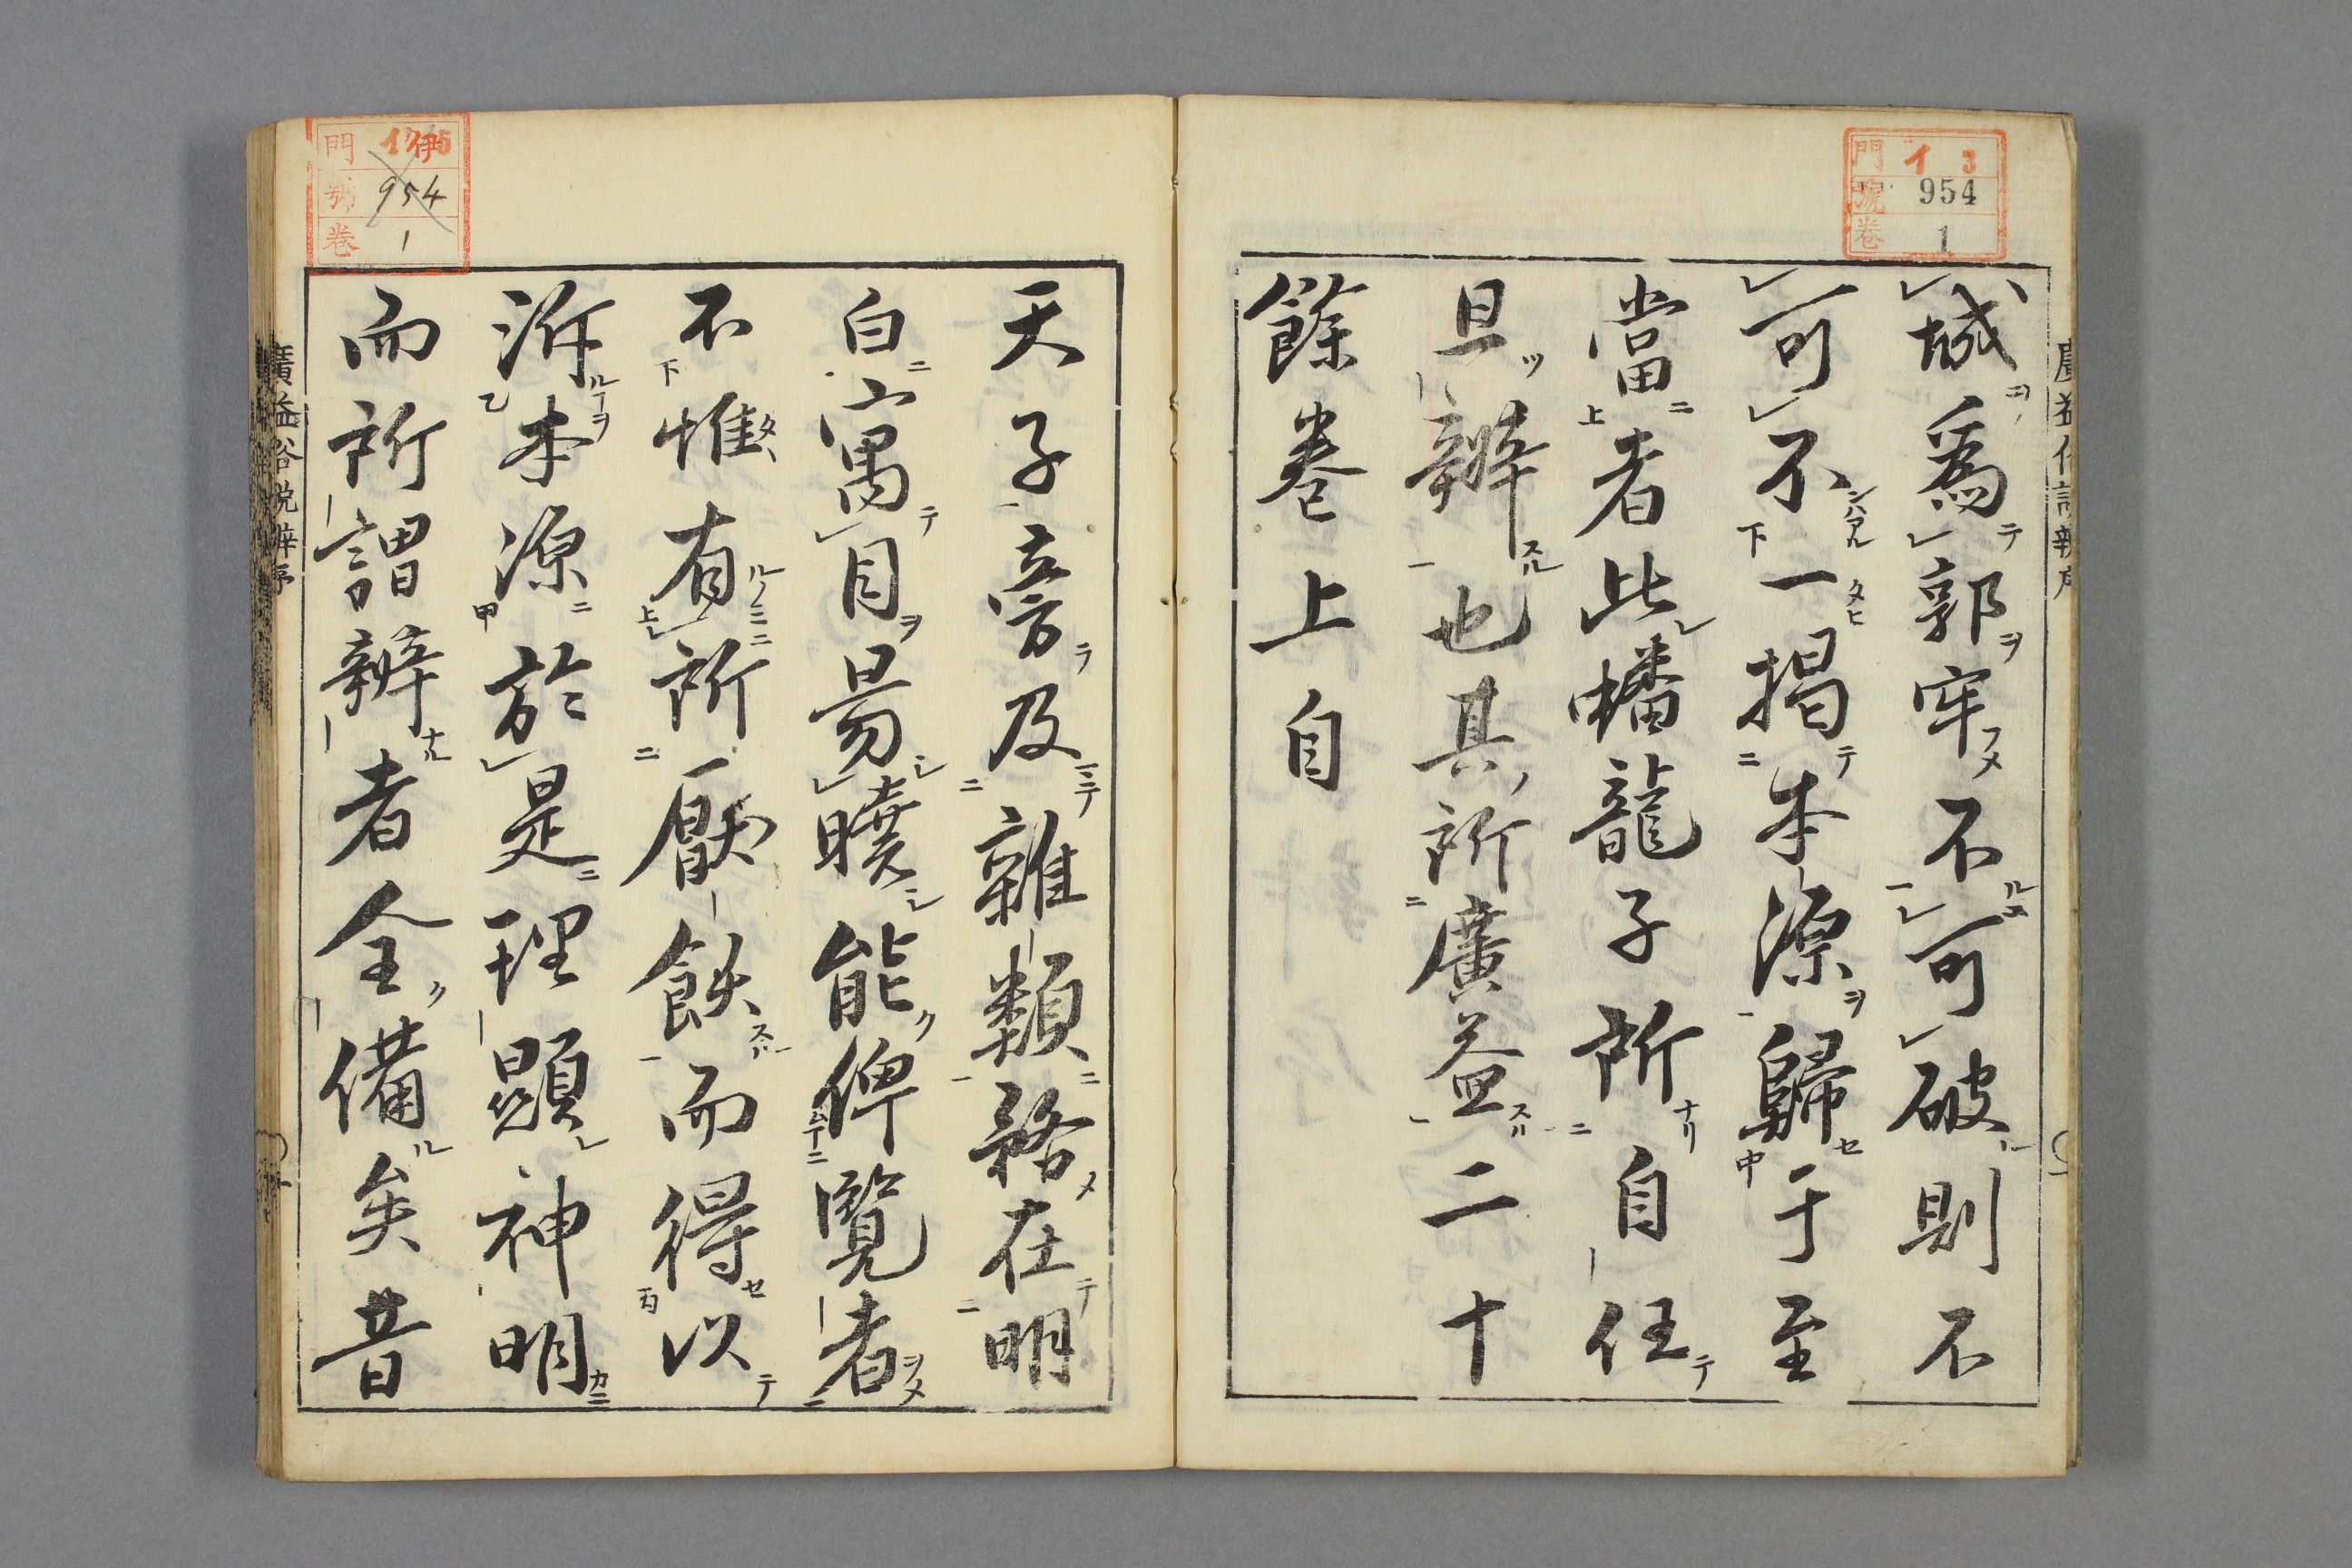 城爲郭牢不可破則不
可不一揭本源歸于至
當者此蟠龍子所自任
且辨也其所廣益二十
餘卷上自
天子旁及雜類務在明
白寓目易曉能俾覽者
不惟有所厭飫而得以
泝本源於是理顕神明
而所謂辨者全備矣昔
廣益俗説辨序
門 イ 3
號 954
卷 1
門 伊
號 954
卷 1